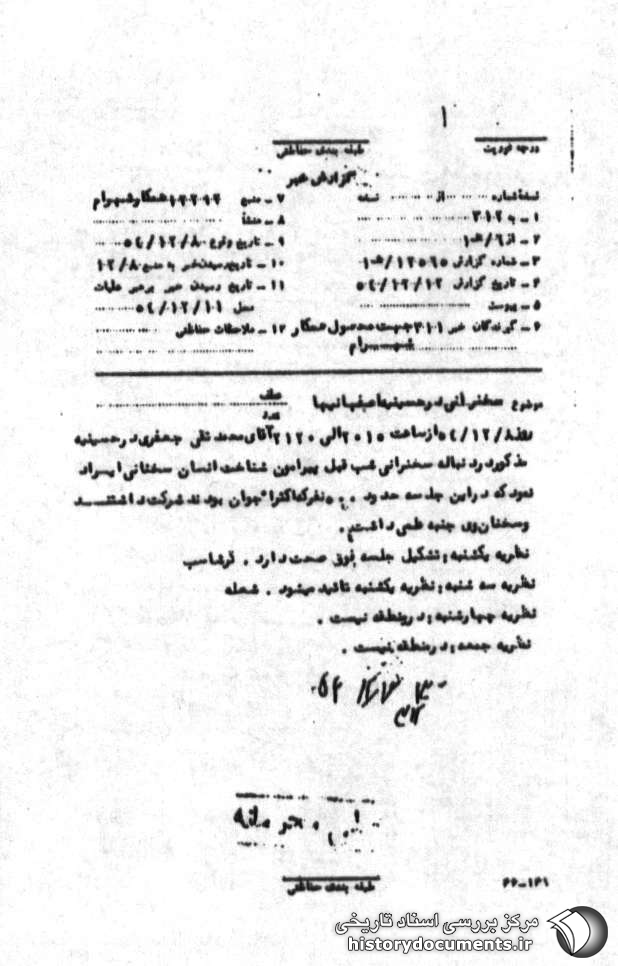 ۱
درجه فوریت
طبقه بندی حفاظتی
گزارش خبر
نسخه شماره ........ از ........ نسخه
۱ـ به ۳۱۲
۲ـ از
۳ـ شماره گزارش
۴ـ تاریخ گزارش ۵۴/۱۲/۱۲
۵ـ پیوست
۶ـ گیرندگان خبر ۳۱۱ جهت محصول همکار
شهرام
۷ـ منبع همکار شهرام
۸ـ منشأ
۹ـ تاریخ وقوع ۵۴/۱۲/۸
۱۰ـ تاریخ رسیدن خبر به منبع ۱۲/۸
۱۱ـ تاریخ رسیدن خبر به رهبر عملیات
محل ۵۴/۱۲/۱۱
۱۲ـ ملاحظات حفاظتی
موضوع سخنرانی در حسینیه اصفهانیها
روز ۵۴/۱۲/۸ از ساعت ۲۰۱۵ الی ۲۱۲۰ آقای محمد تقی جعفری در حسینیه
مذکور در دنباله سخنرانی شب قبل پیرامون شناخت انسان سخنانی ایراد
نمود که در این جلسه حدود نفر که اکثرا جوان بودند شرکت داشتند
و سخنان وی جنبه علمی داشت.
نظریه یکشنبه: تشکیل جلسه فوق صحت دارد. گرشاسب
نظریه سه شنبه: نظریه یکشنبه تائید میشود. شعله
نظریه چهارشنبه: در منطقه نیست.
نظریه جمعه: در منطقه نیست.
طبقه بندی حفاظتی
مرکز بررسی اسناد تاریخی
historydocuments.ir